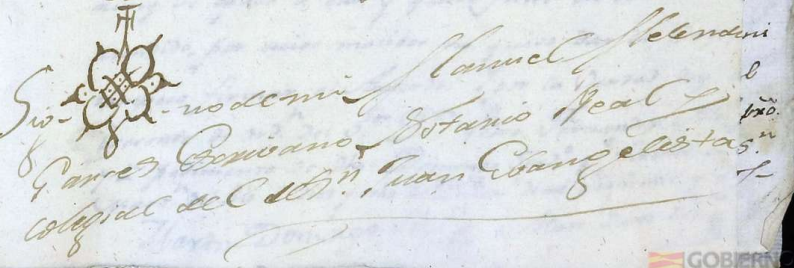 Sig-no de mi Manuel Melendez
Garces Escrivano, Notario Real y
colegial del de Sn. Juan Evangelista
GOBIERNO